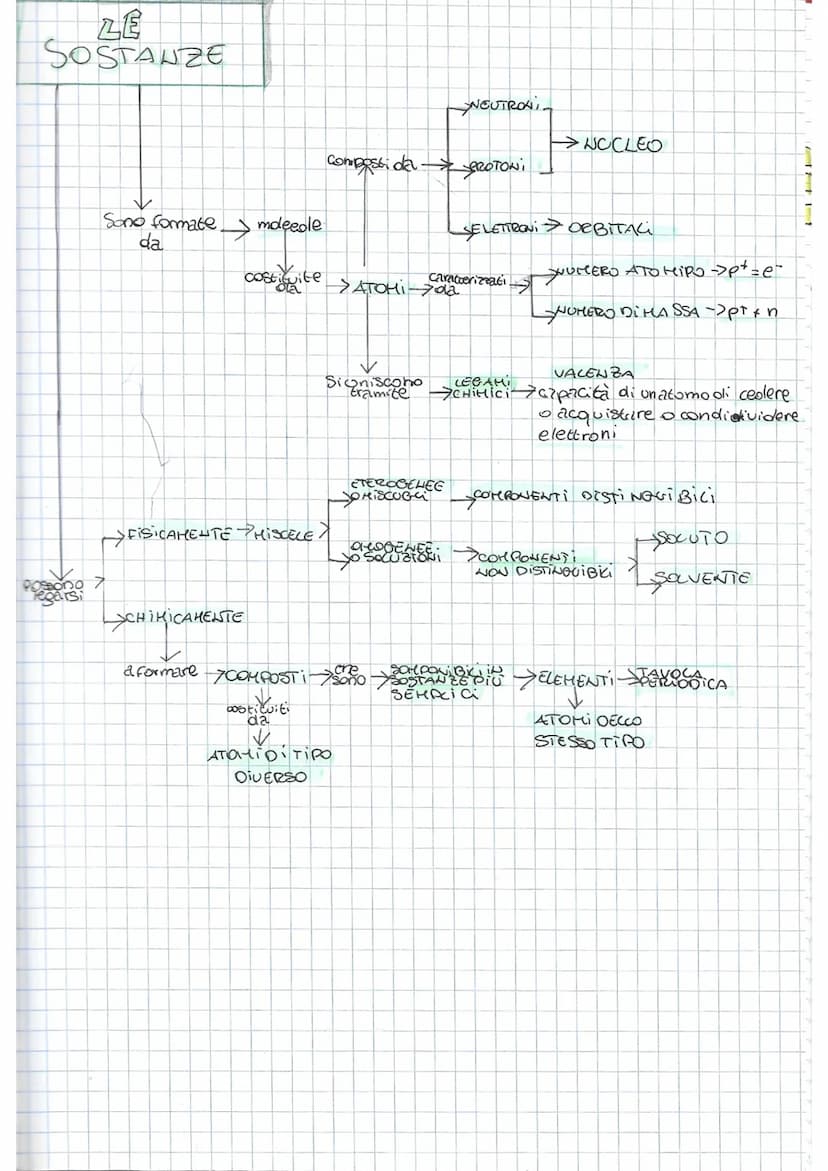 LE
SOSTANZE
NEUTRONI
NUCLEO
Composti da
PROTONI
Sono formate
da
molecole
ELETTRONI
ORBITALI
costituite
da
ATOMI
Caratterizzati
da
NUMERO ATOMIRO -> p+ = e-
NUMERO DI MASSA -> p+ + n
Si uniscono
tramite
LEGAMI
CHIMICI
VALENZA
capacità di un atomo di cedere
o acquistare o condidividere
elettroni
ETEROGENEE
O MISCUGLI
COMPONENTI DISTINGUIBILI
FISICAMENTE
MISCELE
OMOGENEE
O SOLUZIONI
COMPONENTI
NON DISTINGUIBILI
SOLUTO
SOLVENTE
possono
legarsi
CHIMICAMENTE
a formare
COMPOSTI
che
sono
SCOMPONIBILI IN
SOSTANZE PIÙ
SEMPLICI
ELEMENTI
TAVOLA
PERIODICA
costituiti
da
ATOMI DELLO
STESSO TIPO
ATOMI DI TIPO
DIVERSO